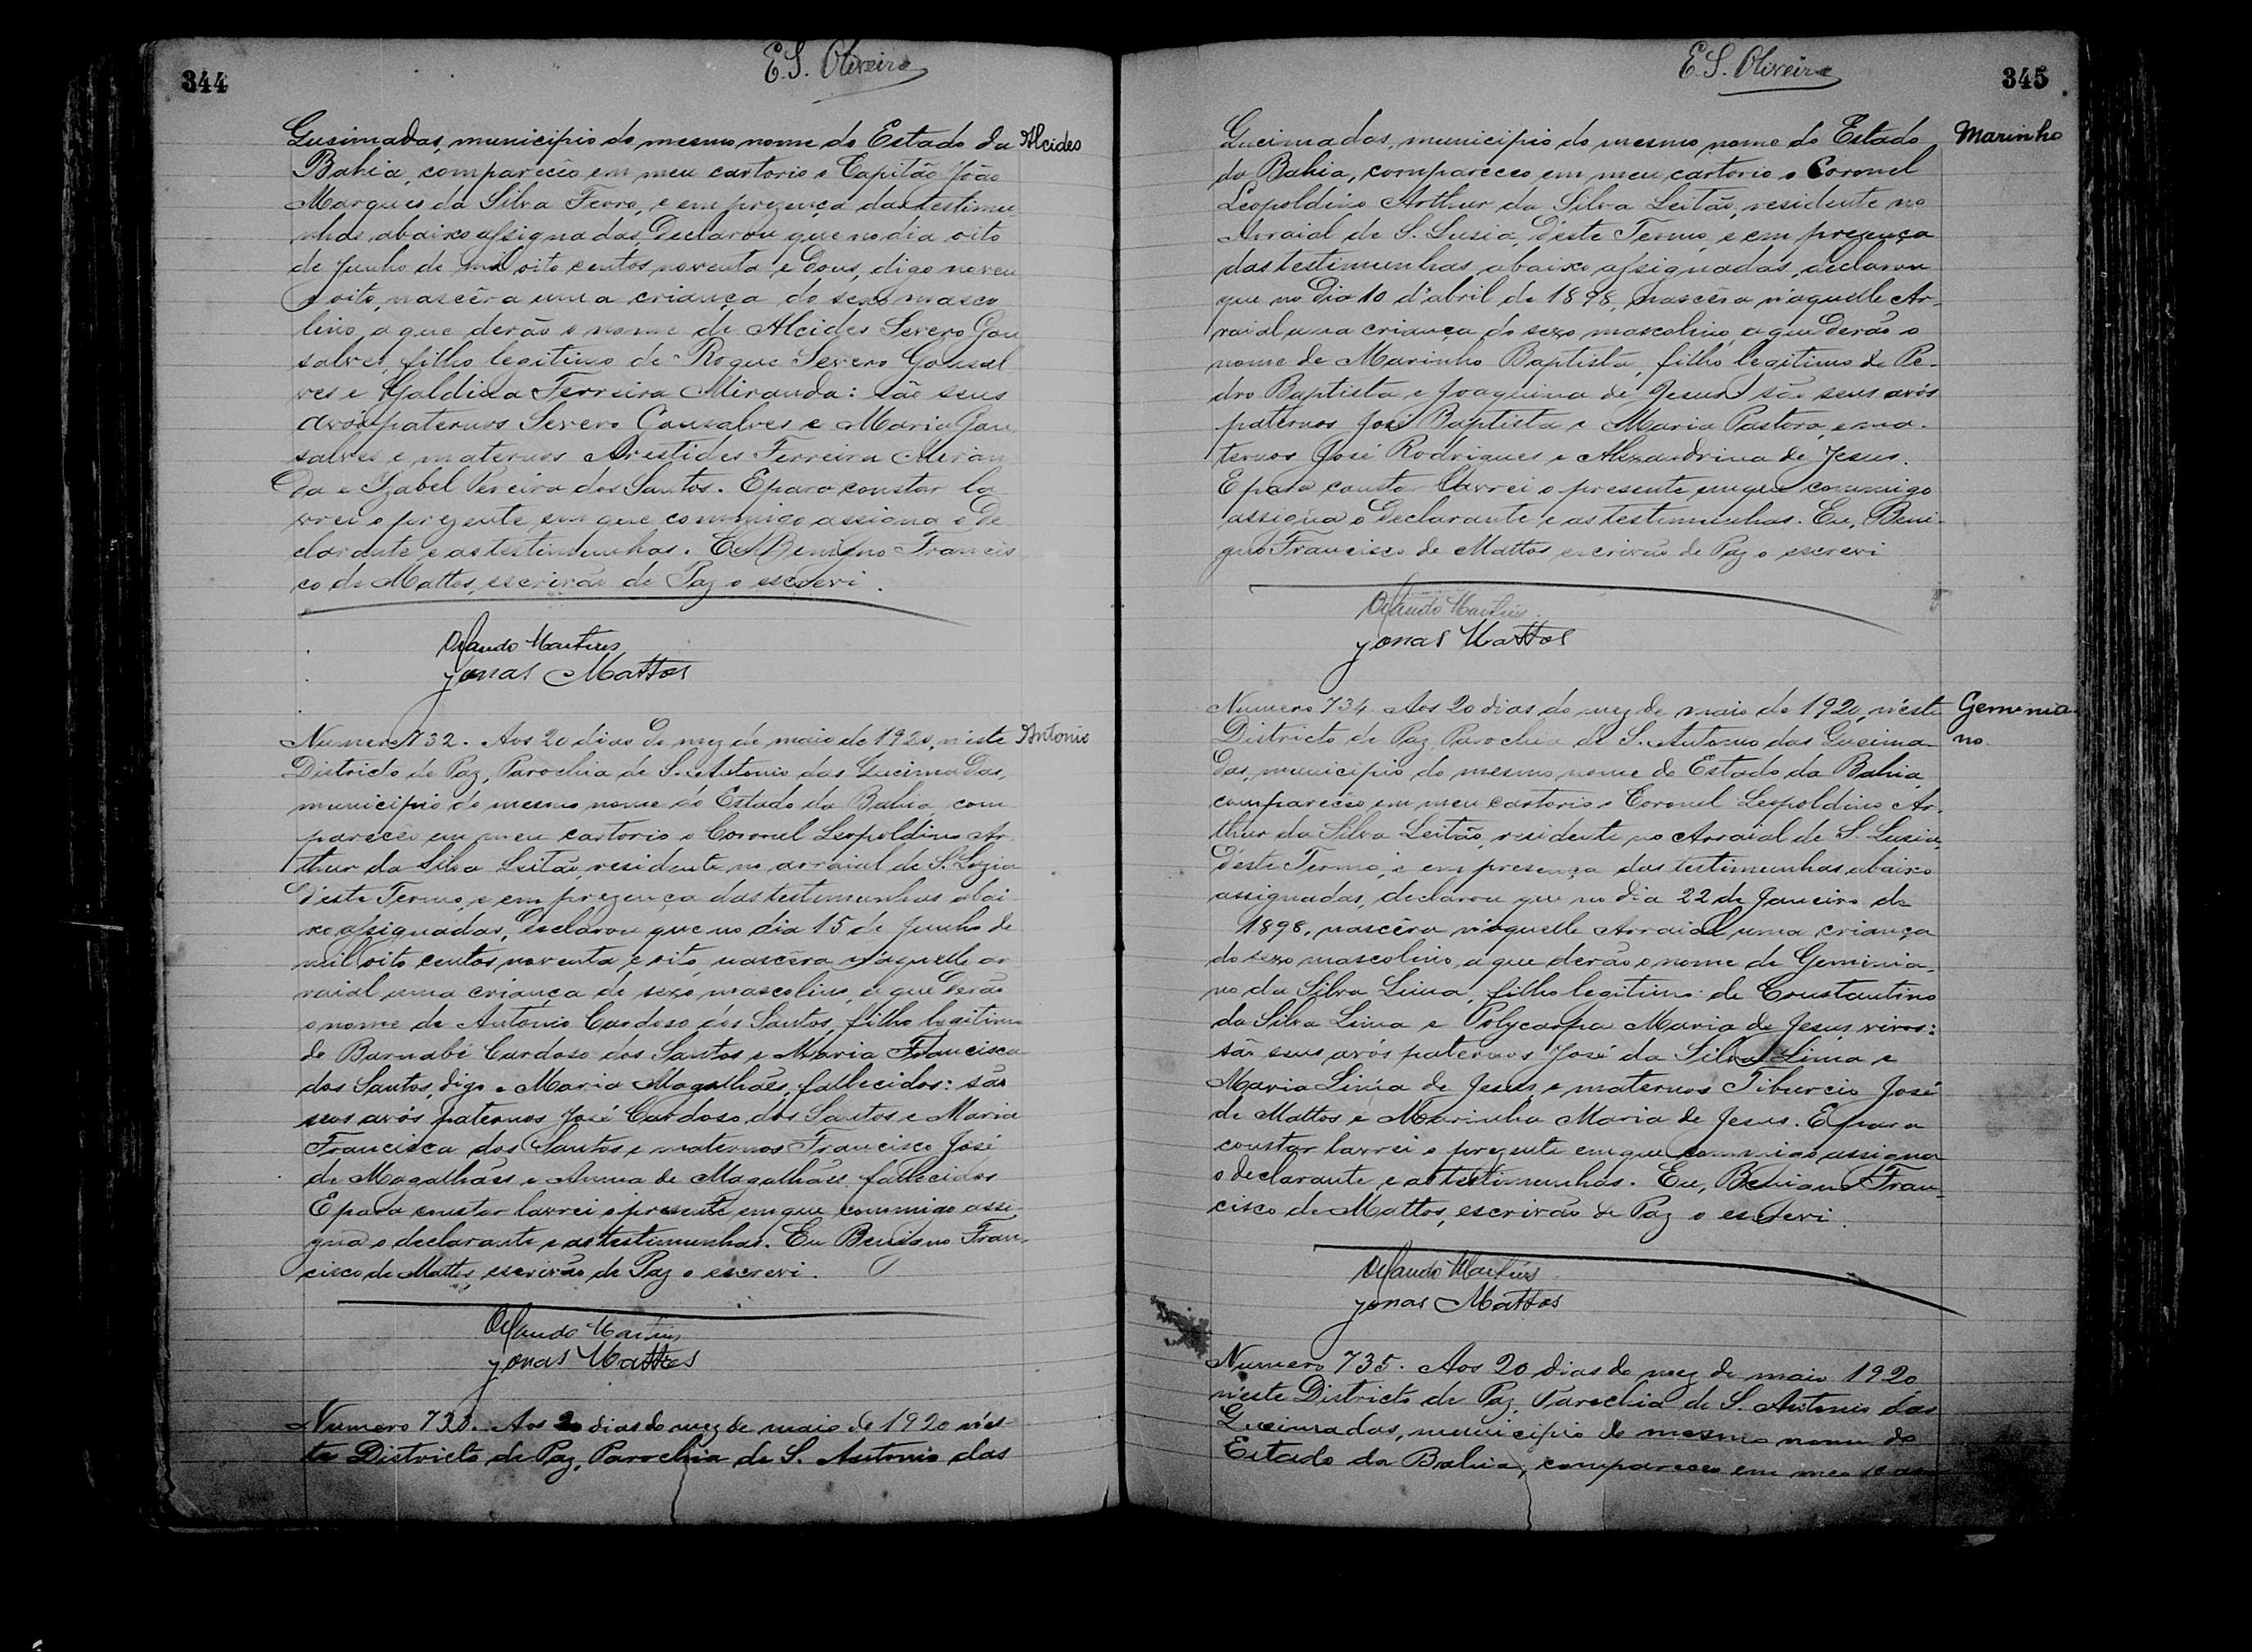 344
E.S. Oliveira
Gueimadas, municipio do mesmo nome do Estado da
Alcides
Bahia, comparecêo em meu cartorio o Capitão João
Marques da Silva Ferro, e em prezença das testimu
nhas abaixo assignadas, declarou que no dia oito
de Junho de mil oito centos noventa e dous, digo noven
e oito, nascêra uma criança do sexo masco
lino, a que derão o nome de Alcides Severo Gon
salves, filho legitimo de Roque Severo Gonsal
ves e Galdina Ferreira Miranda: são seus
avós paternos Severo Gonsalves e Maria Gon
salves e maternos Arestides Ferreira Miran
da e Izabel Pereira dos Santos. E para constar la
vrei o prezente em que commigo assigna o de
clarante e as testimunhas. Eu Benigno Francis
co de Mattos, escrivão de Paz o escrevi.
Orlando Martins
Jonas Mattos
Numero 732. Aos 20 dias do mez de maio de 1920, n'este
Antonio
Districto de Paz, Parochia de S. Antonio das Gueimadas,
municipio do mesmo nome do Estado da Bahia com
parecêo em meu cartorio o Coronel Leopoldino Ar
thur da Silva Leitão, residente no arraial de S. Luzia
d'este Termo, e em prezença das testimunhas abai
xo assignadas, declarou que no dia 15 de Junho de
mil oito centos noventa e oito, nascêra n'aquelle ar
raial uma criança do sexo mascolino, a que derão
o nome de Antonio Cardoso dos Santos, filho legitimo
de Barnabé Cardoso dos Santos e Maria Francisca
dos Santos, digo e Maria Magalhães, fallecidos: são
seus avós paternos José Cardoso dos Santos e Maria
Francisca dos Santos e maternos Francisco José
de Magalhães e Anna de Magalhães, fallecidos
E para constar lavrei o presente em que commigo assi
gna o declarante e as testimunhas. Eu Benigno Fran
cisco de Mattos, escrivão de Paz o escrevi.
Orlando Martins
Jonas Mattos
Numero 733. Aos 20 dias do mez de maio de 1920 n'es
te Districto de Paz, Parochia de S. Antonio das
345
E.S. Oliveira
Gueimadas, municipio do mesmo nome do Estado
Marinho
da Bahia, compareceo em meu cartorio o Coronel
Leopoldino Arthur da Silva Leitão, residente no
Arraial de S. Lusia, d'este Termo, e em prezença
das testimunhas abaixo assignadas, declarou
que no dia 10 d'abril de 1898, nascêra n'aquelle Ar-
raial uma criança do sexo mascolino, a que derão o
nome de Marinho Baptista, filho legitimo de Pe-
dro Baptista e Joaquina de Jesus: são seus avós
paternos José Baptista e Maria Pastora, e ma-
ternos José Rodrigues e Alexandrina de Jesus.
E para constar lavrei o presente em que commigo
assigna o declarante e as testimunhas. Eu, Beni-
gno Francisco de Mattos escrivão de Paz o escrevi
Orlando Martins
Jonas Mattos
Numero 734. Aos 20 dias do mez de maio de 1920, n'este
Geminia-
Districto de Paz, Parochia de S. Antonio das Gueima-
no.
das, municipio do mesmo nome do Estado da Bahia,
comparecêo em meu cartorio o Coronel Leopoldino Ar-
thur da Silva Leitão, residente no Arraial de S. Lusia,
d'este Termo, e em presença das testimunhas abaixo
assignadas, declarou que no dia 22 de Janeiro de
1898, nascêra n'aquelle Arraial uma criança
do sexo mascolino, a que derão o nome de Geminia-
no da Silva Lima, filho legitimo de Constantino
da Silva Lima e Polycarpa Maria de Jesus, vivos:
são seus avós paternos José da Silva Lima e
Maria Lima de Jesus, e maternos Tiburcio José
de Mattos e Marinha Maria de Jesus. E para
constar lavrei o prezente em que commigo assigna
o declarante e as testimunhas. Eu, Benigno Fran-
cisco de Mattos, escrivão de Paz o escrevi.
Orlando Martins
Jonas Mattos
Numero 735. Aos 20 dias do mez de maio 1920
n'este Districto de Paz, Parochia de S. Antonio das
Gueimadas, municipio do mesmo nome do
Estado da Bahia, compareceo em meo